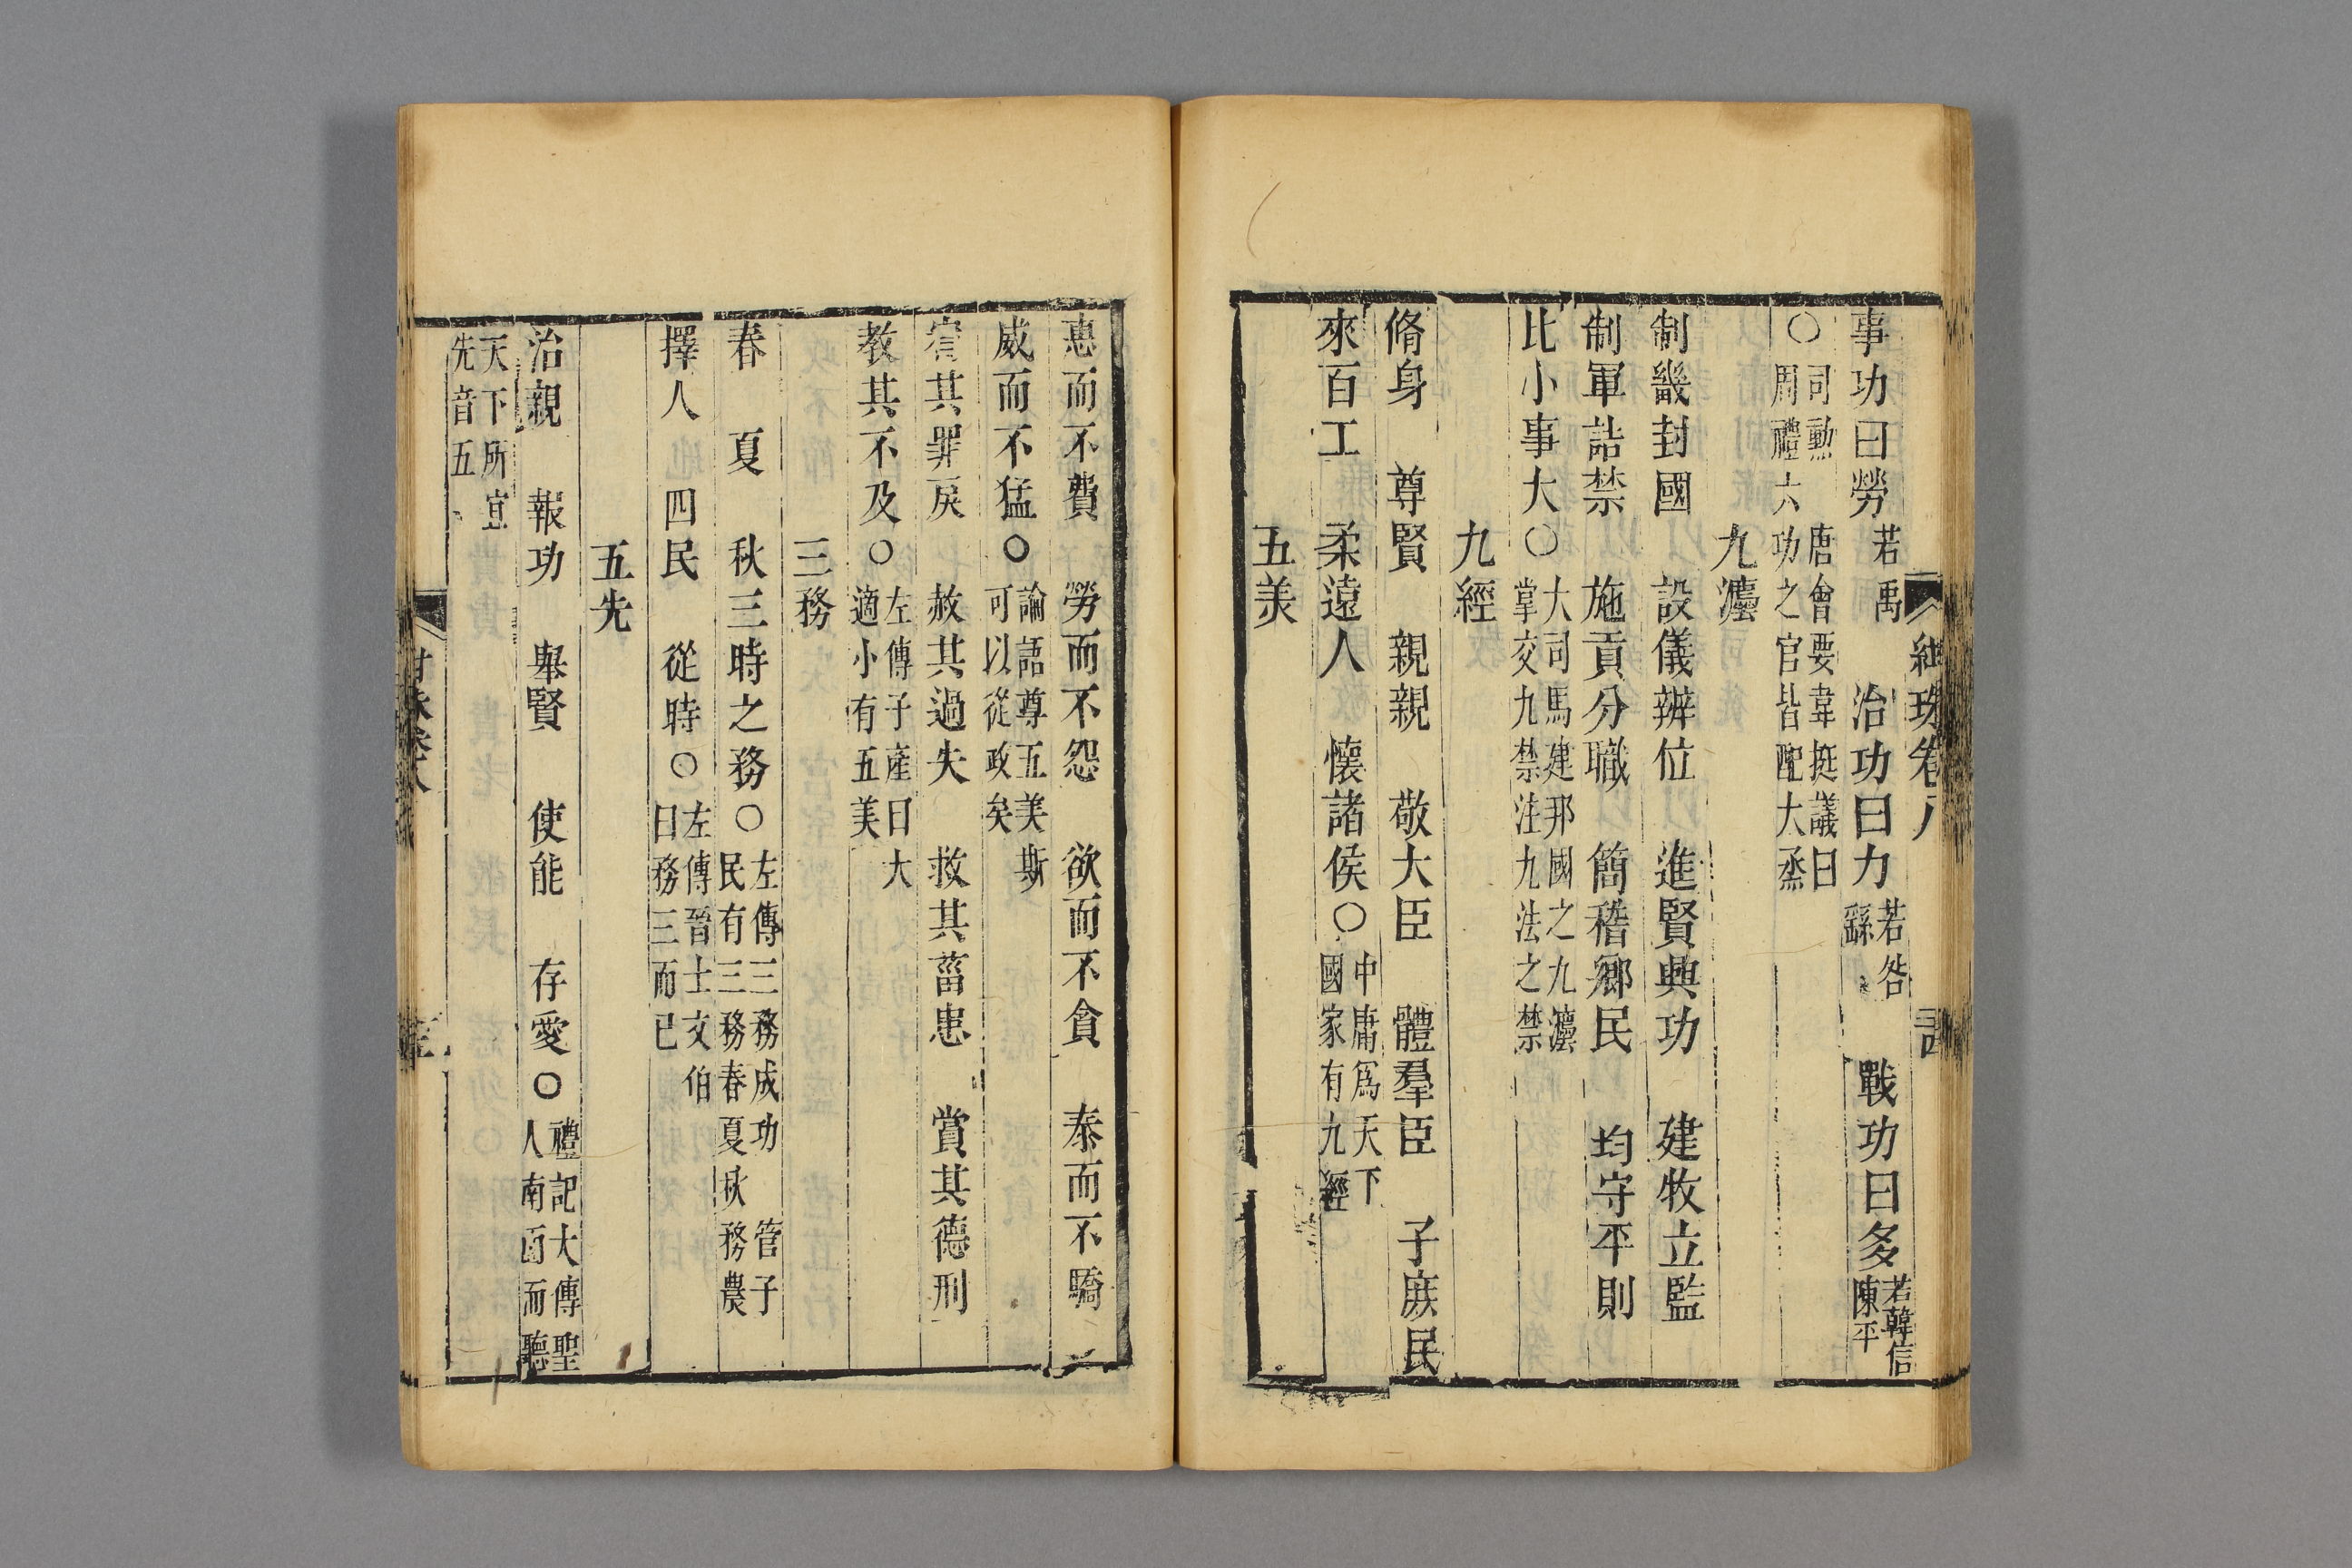 事功曰勞若禹 治功曰力若咎繇 戰功曰多若韓信陳平
○司勲 唐會要韋挺議曰周禮六功之官皆配大烝
九灋
制畿封國 設儀辨位 進賢興功 建牧立監
制軍詰禁 施貢分職 簡稽鄉民 均守平則
比小事大○大司馬建邦國之九灋掌交九禁注九法之禁
九經
脩身 尊賢 親親 敬大臣 體羣臣 子庶民
來百工 柔遠人 懷諸侯○中庸爲天下國家有九經
五美
惠而不費 勞而不怨 欲而不貪 泰而不驕
威而不猛○論語尊五美斯可以從政矣
宥其罪戾 赦其過失 救其菑患 賞其德刑
教其不及○左傳子產曰大適小有五美
三務
春 夏 秋三時之務○左傳三務成功 管子民有三務春夏秋務農
擇人 四民 從時○左傳晉士文伯曰務三而已
五先
治親 報功 舉賢 使能 存愛○禮記大傳聖人南面而聽
天下所宜先音五